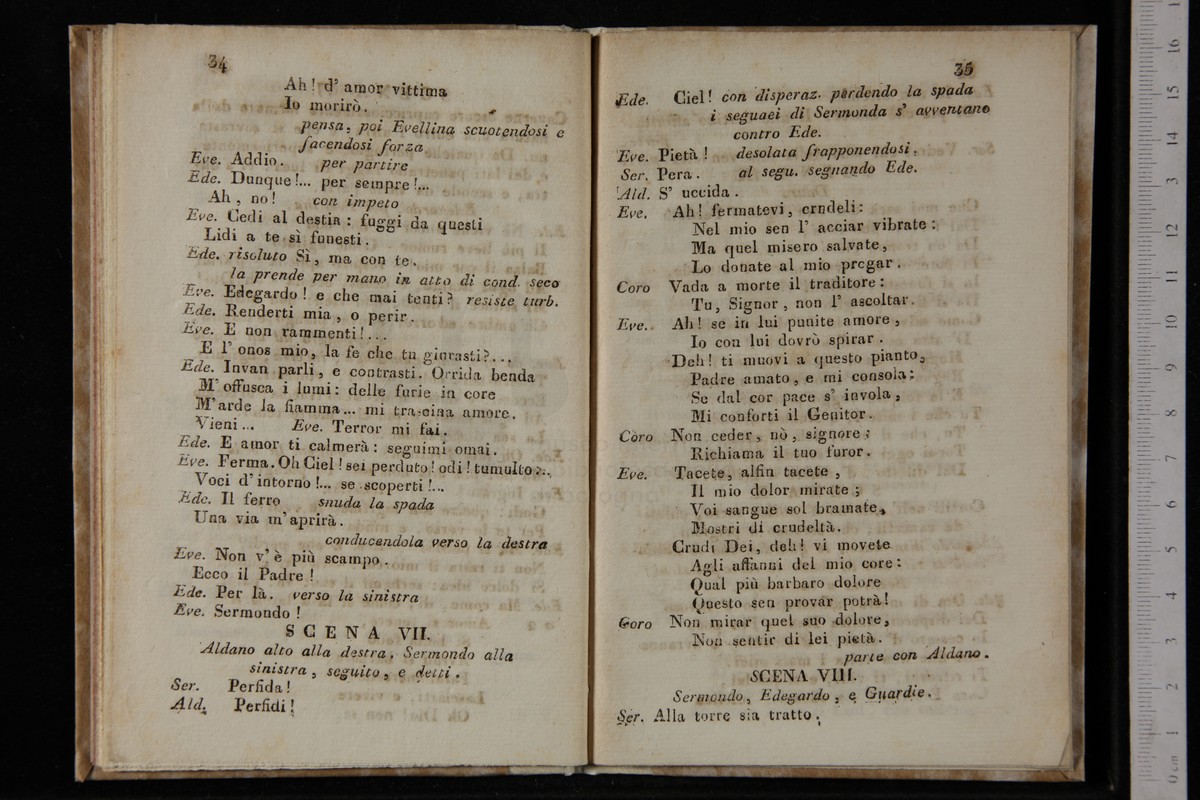 34
Ah! d' amor vittima
Io morirò.
pensa, poi Evellina scuotendosi e
facendosi forza
Eve. Addio. per partire
Ede. Dunque!... per sempre!...
Ah, no! con impeto
Eve. Cedi al destin: fuggi da questi
Lidi a te sì funesti.
Ede. risoluto Sì, ma con te.
la prende per mano in atto di cond. seco
Eve. Edegardo! e che mai tenti? resiste turb.
Ede. Renderti mia, o perir.
Eve. E non rammenti!...
E l' onor mio, la fe che tu giurasti?...
Ede. Invan parli, e contrasti. Orrida benda
M' offusca i lumi: delle furie in core
M' arde la fiamma... mi trascina amore.
Vieni... Eve. Terror mi fai.
Ede. E amor ti calmerà: seguimi omai.
Eve. Ferma. Oh Ciel! sei perduto! odi! tumulto...
Voci d' intorno!... se scoperti!...
Ede. Il ferro snuda la spada
Una via m' aprirà.
conducendola verso la destra
Eve. Non v' è più scampo.
Ecco il Padre!
Ede. Per là. verso la sinistra
Eve. Sermondo!
SCENA VII.
Aldano alto alla destra, Sermondo alla
sinistra, seguito, e detti.
Ser. Perfida!
Ald. Perfidi!
35
Ede. Ciel! con disperaz. perdendo la spada
i seguaci di Sermonda s' avventano
contro Ede.
Eve. Pietà! desolata frapponendosi.
Ser. Pera. al segu. segnando Ede.
Ald. S' uccida.
Eve. Ah! fermatevi, crudeli:
Nel mio sen l' acciar vibrate:
Ma quel misero salvate,
Lo donate al mio pregar.
Coro Vada a morte il traditore:
Tu, Signor, non l' ascoltar.
Eve. Ah! se in lui punite amore,
Io con lui dovrò spirar.
Deh! ti muovi a questo pianto,
Padre amato, e mi consola:
Se dal cor pace s' invola,
Mi conforti il Genitor.
Coro Non ceder, nò, signore:
Richiama il tuo furor.
Eve. Tacete, alfin tacete,
Il mio dolor mirate;
Voi sangue sol bramate,
Mostri di crudeltà.
Crudi Dei, deh! vi movete
Agli affanni del mio core:
Qual più barbaro dolore
Questo sen provar potrà!
Coro Non mirar quel suo dolore,
Non sentir di lei pietà.
parte con Aldano.
SCENA VIII.
Sermondo, Edegardo, e Guardie.
Ser. Alla torre sia tratto.